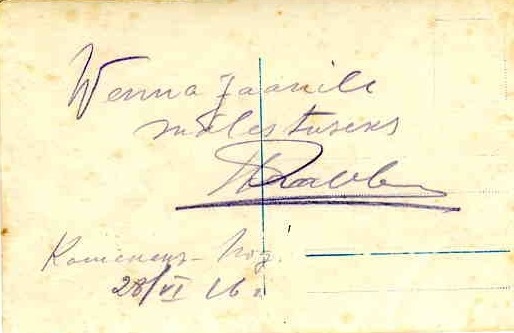 Wenna Jaanile
mälestuseks
Kamenenz-Pod.
28/VI 16 г.